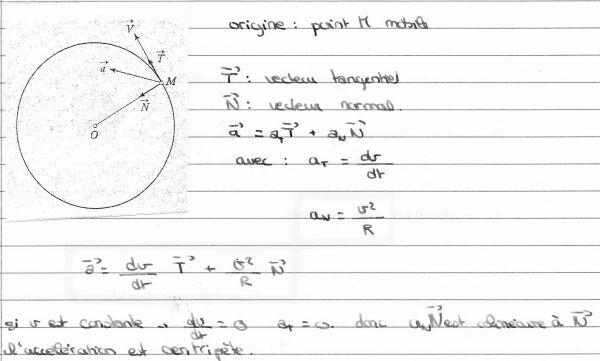 origine : point M mobile
V⃗
T⃗
a⃗
M
N⃗
O
T⃗ : vecteur tangentiel
N⃗ : vecteur normal.
a⃗ = a_T T⃗ + a_N N⃗
avec : a_T = dv/dt
a_N = v²/R
a⃗ = dv/dt T⃗ + v²/R N⃗
si v est constante dv/dt = 0 a_T = 0. donc a_N N⃗ est à N⃗
l'accélération est centripète.